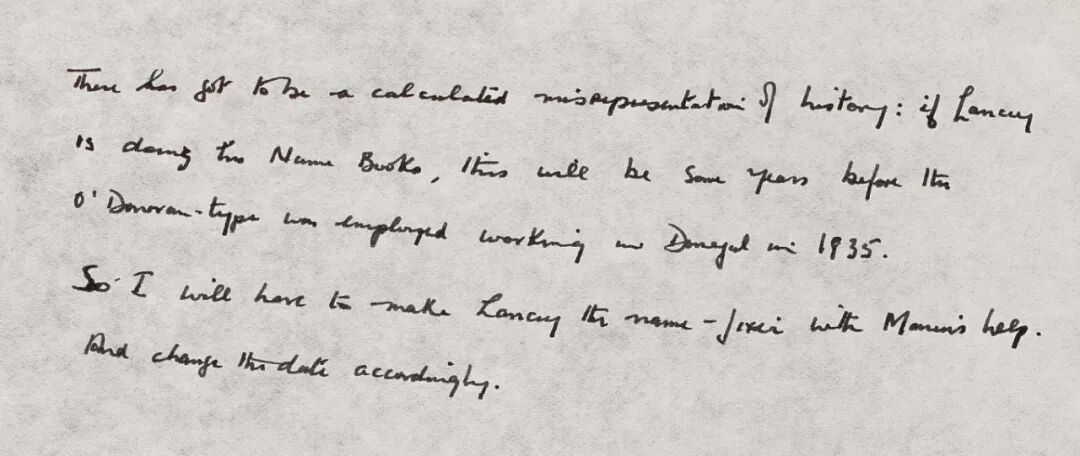 There has got to be a calculated misrepresentation of history: if Lancey
is doing his Name Books, this will be some years before the
O'Donovan-type was employed working in Donegal in 1935.
So I will have to make Lancey the name-fixer with Manus's help.
And change the date accordingly.